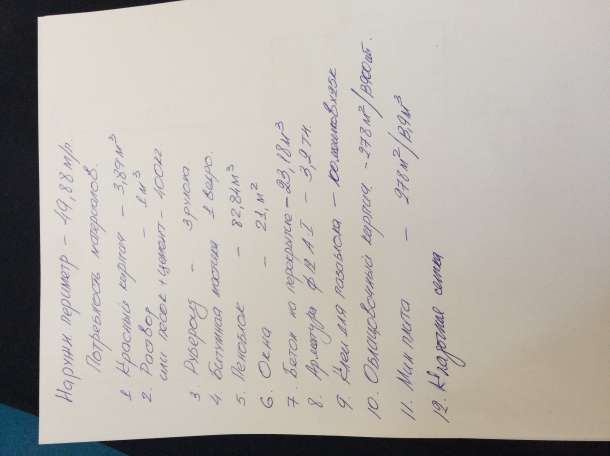 Наружн. периметр – 49,88 м/р.
Потребность материалов.
1 Красный кирпич – 3,89 м³
2. Раствор – 1 м³
или песок + цемент – 100 кг
3. Рубероид – 3 рулона
4. Битумная мастика 1 ведро.
5. Пеноблок – 82,84 м³
6. Окна – 21, м²
7. Бетон на перекрытие – 23,18 м³
8. Арматура ф 12 А I – 3,2 тн.
9. Клей для газаблока – мешков х 25к
10. Облицовочный кирпич – 278 м² /
11. Мин плита – 278 м² / 13,9 м³
12. Кладочная сетка